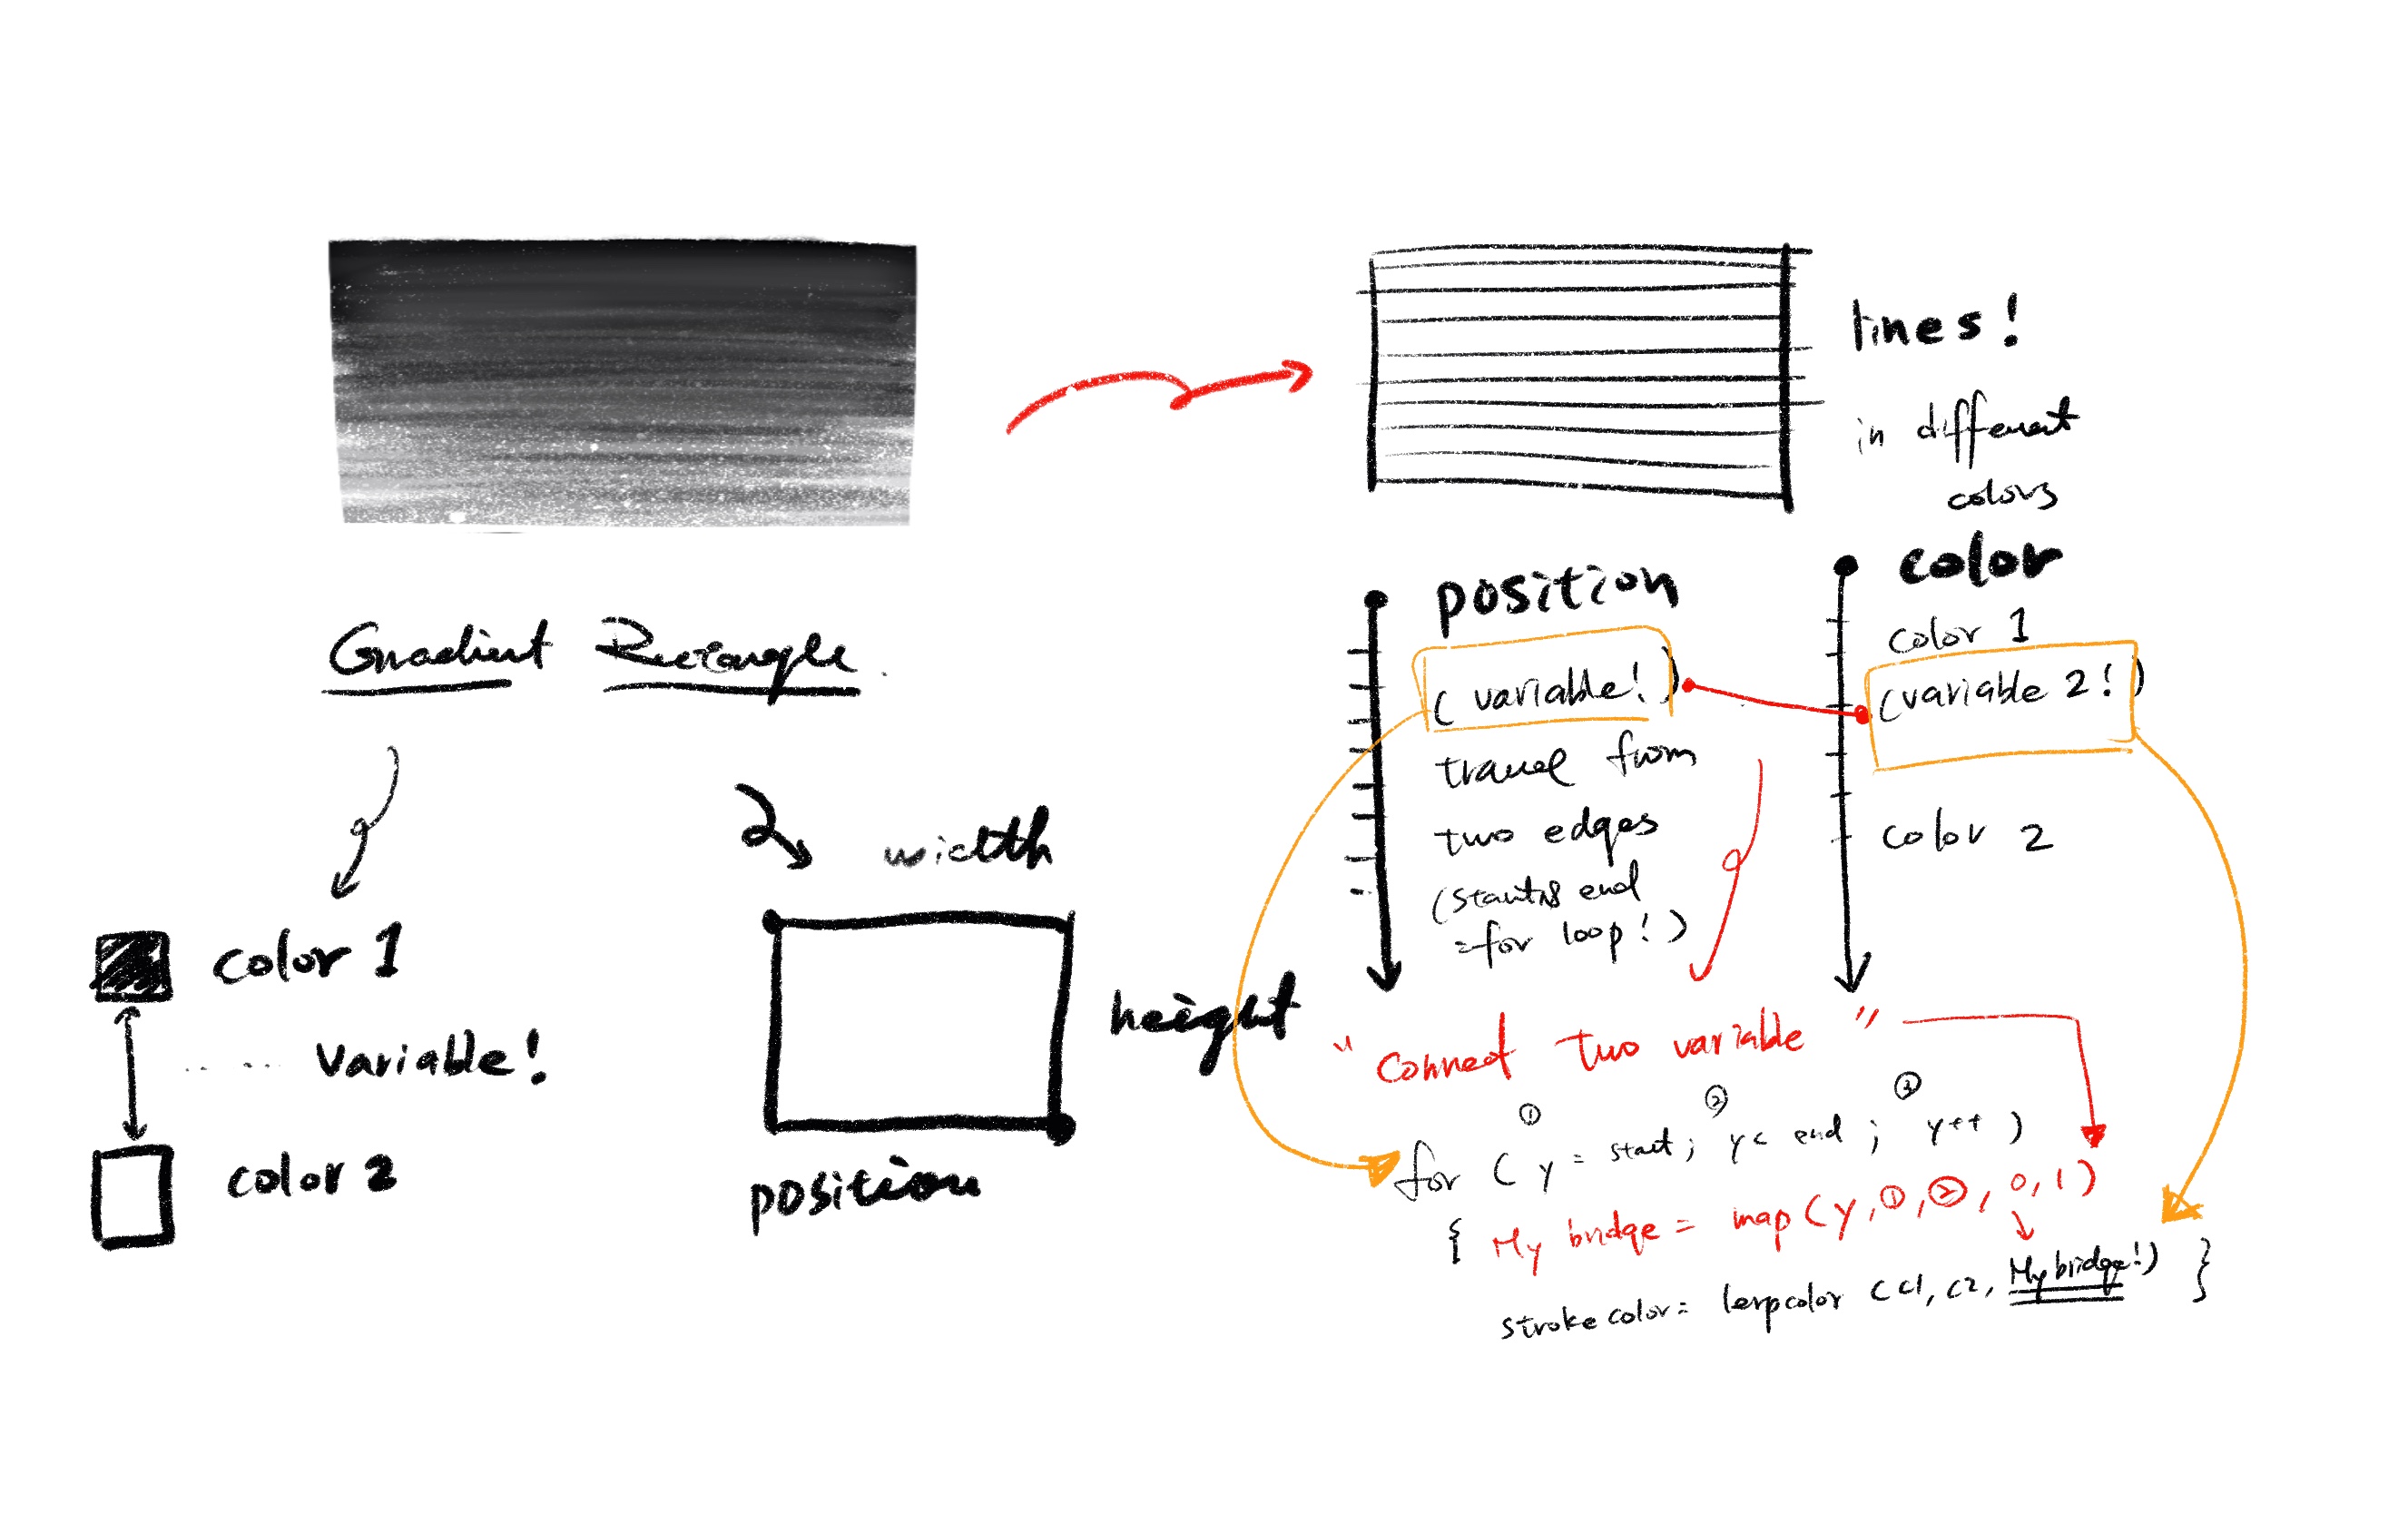 Gradient Rectangle
color 1
variable!
color 2
width
height
position
lines!
in different
colors
position
(variable!)
travel from
two edges
(start & end
=for loop!)
color
color 1
(variable 2!)
color 2
"Connect two variable"
① ② ③
for ( y = start; y< end ; y++ )
{ My bridge = map(y,①,②, 0,1)
stroke color= lerpcolor (c1, c2, My bridge!) }